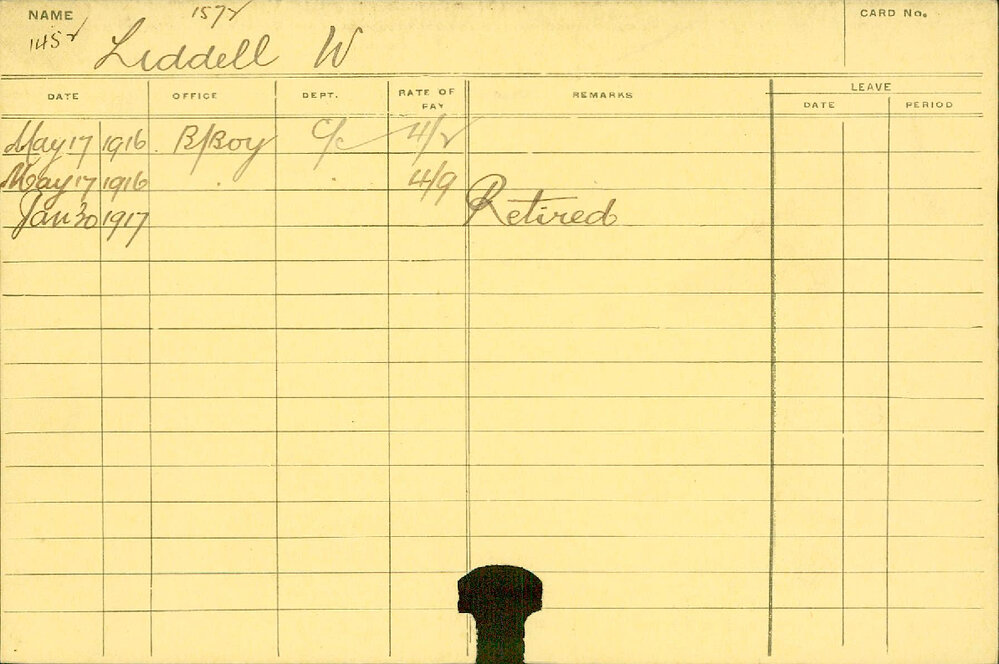 NAME
CARD No.
Liddell W
DATE OFFICE DEPT. RATE OF PAY REMARKS LEAVE
DATE PERIOD
May 17 1916 B/Boy C/c 4/2
May 17 1916 . . 4/9
Jan 30 1917 Retired